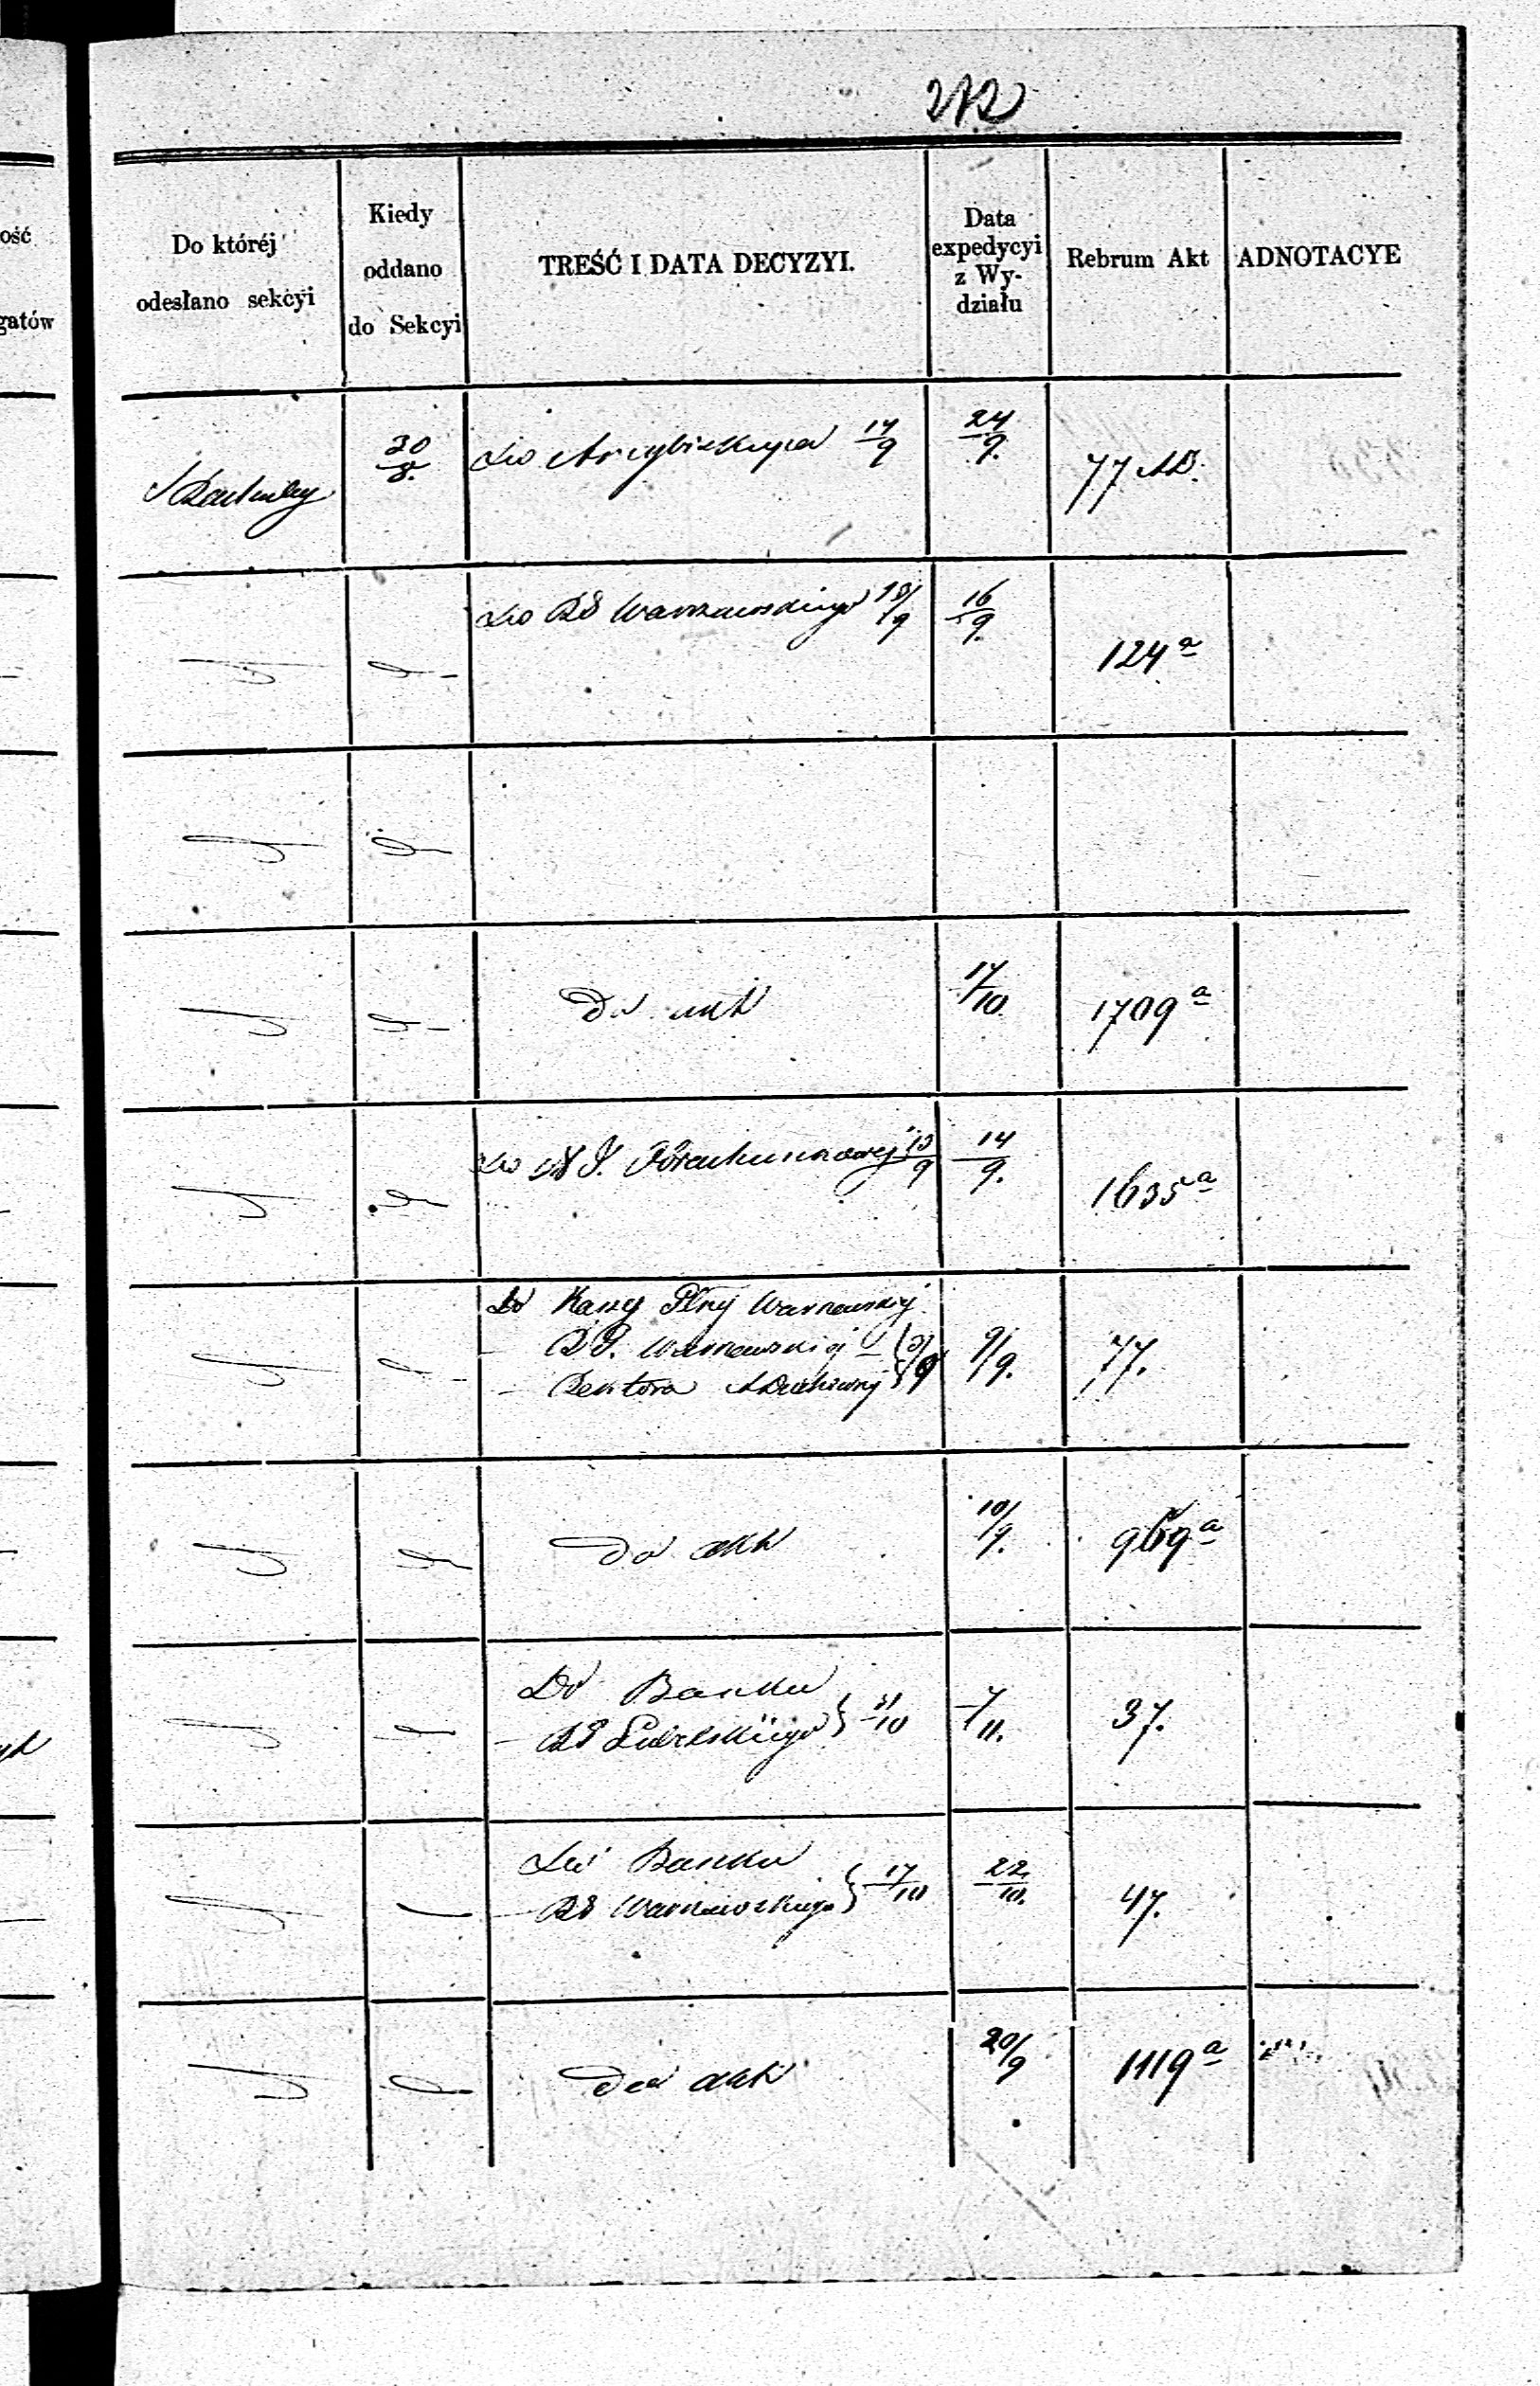 212
ość
gatów
Do któréj
odesłano sekcyi
Kiedy
oddano
do Sekcyi
TREŚĆ I DATA DECYZYI.
Data
expedycyi
z Wy-
działu
Rebrum Akt
ADNOTACYE
30/8. Do Arcybiskupa 17/9 24/9. 77
Do RG Warszawskiego 16/9. 124a
Do akt 17/10 1709a
Do 14/9. 1635a
Do Kasy Głnej Warszawskiej
RG. Warszawskiej 9/9. 77.
Rektora
Do akt 10/9. 969a
Do Banku
RG Lubelskiego } 7/11. 37.
Do Banku
RG Warszawskiego } 17/10 22/10. 47.
Do akt 20/9 1119a